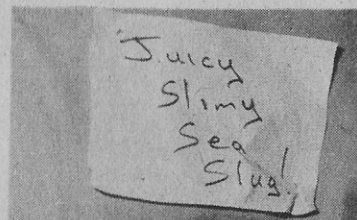 Juicy
Slimy
Sea
Slug!